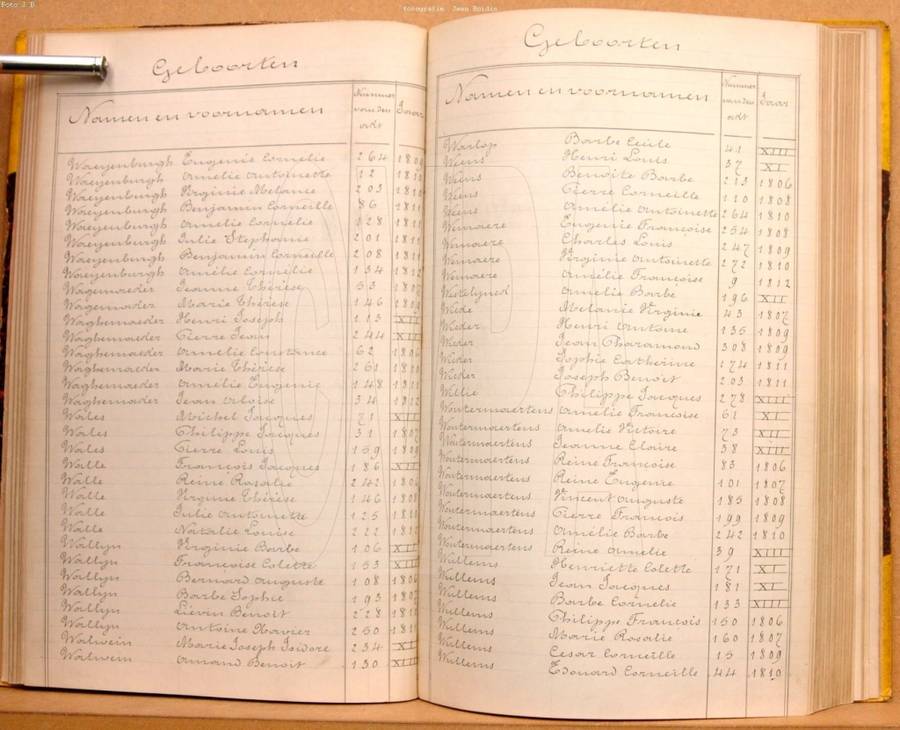 Foto J B
fotografie Jean Boidin
Geboorten
Namen en voornamen Nummer van den akt Jaar
Waeyenburgh Eugenie Cornelie 264 1809
Waeyenburgh Amelie Antoinette 12 1810
Waeyenburgh Virginie Melanie 203 1810
Waeyenburgh Benjamin Corneille 86 1811
Waeyenburgh Amelie Cornelie 128 1811
Waeyenburgh Julie Stephanie 201 1811
Waeyenburgh Benjamin Corneille 208 1811
Waeyenburgh Amélie Cornélie 134 1812
Wagemaeder Jeanne Thérèse 53 1807
Wagemaeder Marie Thérèse 146 1809
Waghemaeder Henri Joseph 113 XII
Waghemaeder Pierre Jean 244 XII
Waghemaeder Amelie Constance 62 1806
Waghemaeder Marie Thérèse 261 1810
Waghemaeder Amélie Eugenie 148 1811
Waghemaeder Jean Aloise 34 1812
Wales Michel Jacques 71 XII
Wales Philippe Jacques 31 1807
Wales Pierre Louis 159 1809
Walle François Jacques 186 XII
Walle Reine Rosalie 242 1806
Walle Virginie Thérèse 146 1808
Walle Julie Antoinette 125 1810
Walle Natalie Louise 222 1812
Wallyn Virginie Barbe 106 XII
Wallyn Françoise Colette 153 XIII
Wallyn Bernard Auguste 108 1806
Wallyn Barbe Sophie 193 1807
Wallyn Liévin Benoit 228 1810
Wallyn Antoine Xavier 250 1811
Walwein Marie Joseph Isidore 234 XI
Walwein Armand Benoit 130 XIII
Geboorten
Namen en voornamen Nummer van den akt Jaar
Warlop Barbe Cecile 41 XIII
Weens Henri Louis 37 XI
Weins Benoite Barbe 213 1806
Weins Pierre Corneille 110 1808
Weins Amélie Antoinette 264 1810
Wemaere Eugenie Françoise 254 1808
Wemaere Charles Louis 247 1809
Wemaere Virginie Antoinette 272 1810
Wemaere Amélie Françoise 9 1812
Westelynck Amelie Barbe 196 XII
Wieder Melanie Virginie 43 1807
Wieder Henri Antoine 135 1809
Wieder Jean Charamond 308 1809
Wieder Sophie Catherine 174 1811
Wieder Joseph Benoit 203 1811
Willie Philippe Jacques 278 XIII
Woutermaertens Amelie Francoise 61 XI
Woutermaertens Amelie Victoire 73 XII
Woutermaertens Jeanne Claire 38 XIII
Woutermaertens Reine Françoise 83 1806
Woutermaertens Reine Eugenie 101 1807
Woutermaertens Vincent Auguste 185 1808
Woutermaertens Pierre François 199 1809
Woutermaertens Amélie Barbe 242 1810
Woutermaertens Reine Amelie 39 XIII
Wullems Henriette Colette 171 XI
Wullems Jean Jacques 181 XI
Wullems Barbe Cornelie 133 XIII
Wullems Philippe François 150 1806
Wullems Marie Rosalie 160 1807
Wullems Cesar Corneille 15 1809
Wullems Edouard Corneille 44 1810